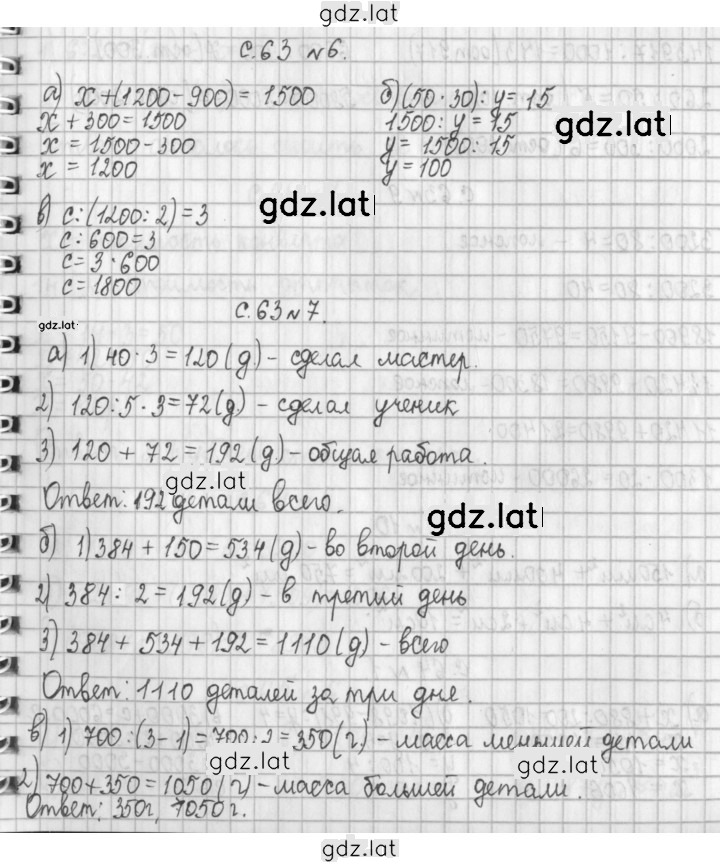 gdz.lat
с.63 №6.
а) x+(1200-900)=1500
x+300=1500
x=1500-300
x=1200
б) (50·30):y=15
1500:y=15
y=1500:15
y=100
gdz.lat
в) c:(1200:2)=3
c:600=3
c=3·600
c=1800
gdz.lat
с.63 №7.
gdz.lat
а) 1) 40·3=120(д) - сделал мастер.
2) 120:5·3=72(д) - сделал ученик
3) 120+72=192(д) - общая работа.
gdz.lat
Ответ: 192 детали всего.
gdz.lat
б) 1) 384+150=534(д) - во второй день.
2) 384:2=192(д) - в третий день
3) 384+534+192=1110(д) - всего
Ответ: 1110 деталей за три дня.
в) 1) 700:(3-1)=700:2=350(г) - масса меньшей детали
gdz.lat
gdz.lat
2) 700+350=1050(г) - масса большей детали.
Ответ: 350г, 1050г.
gdz.lat